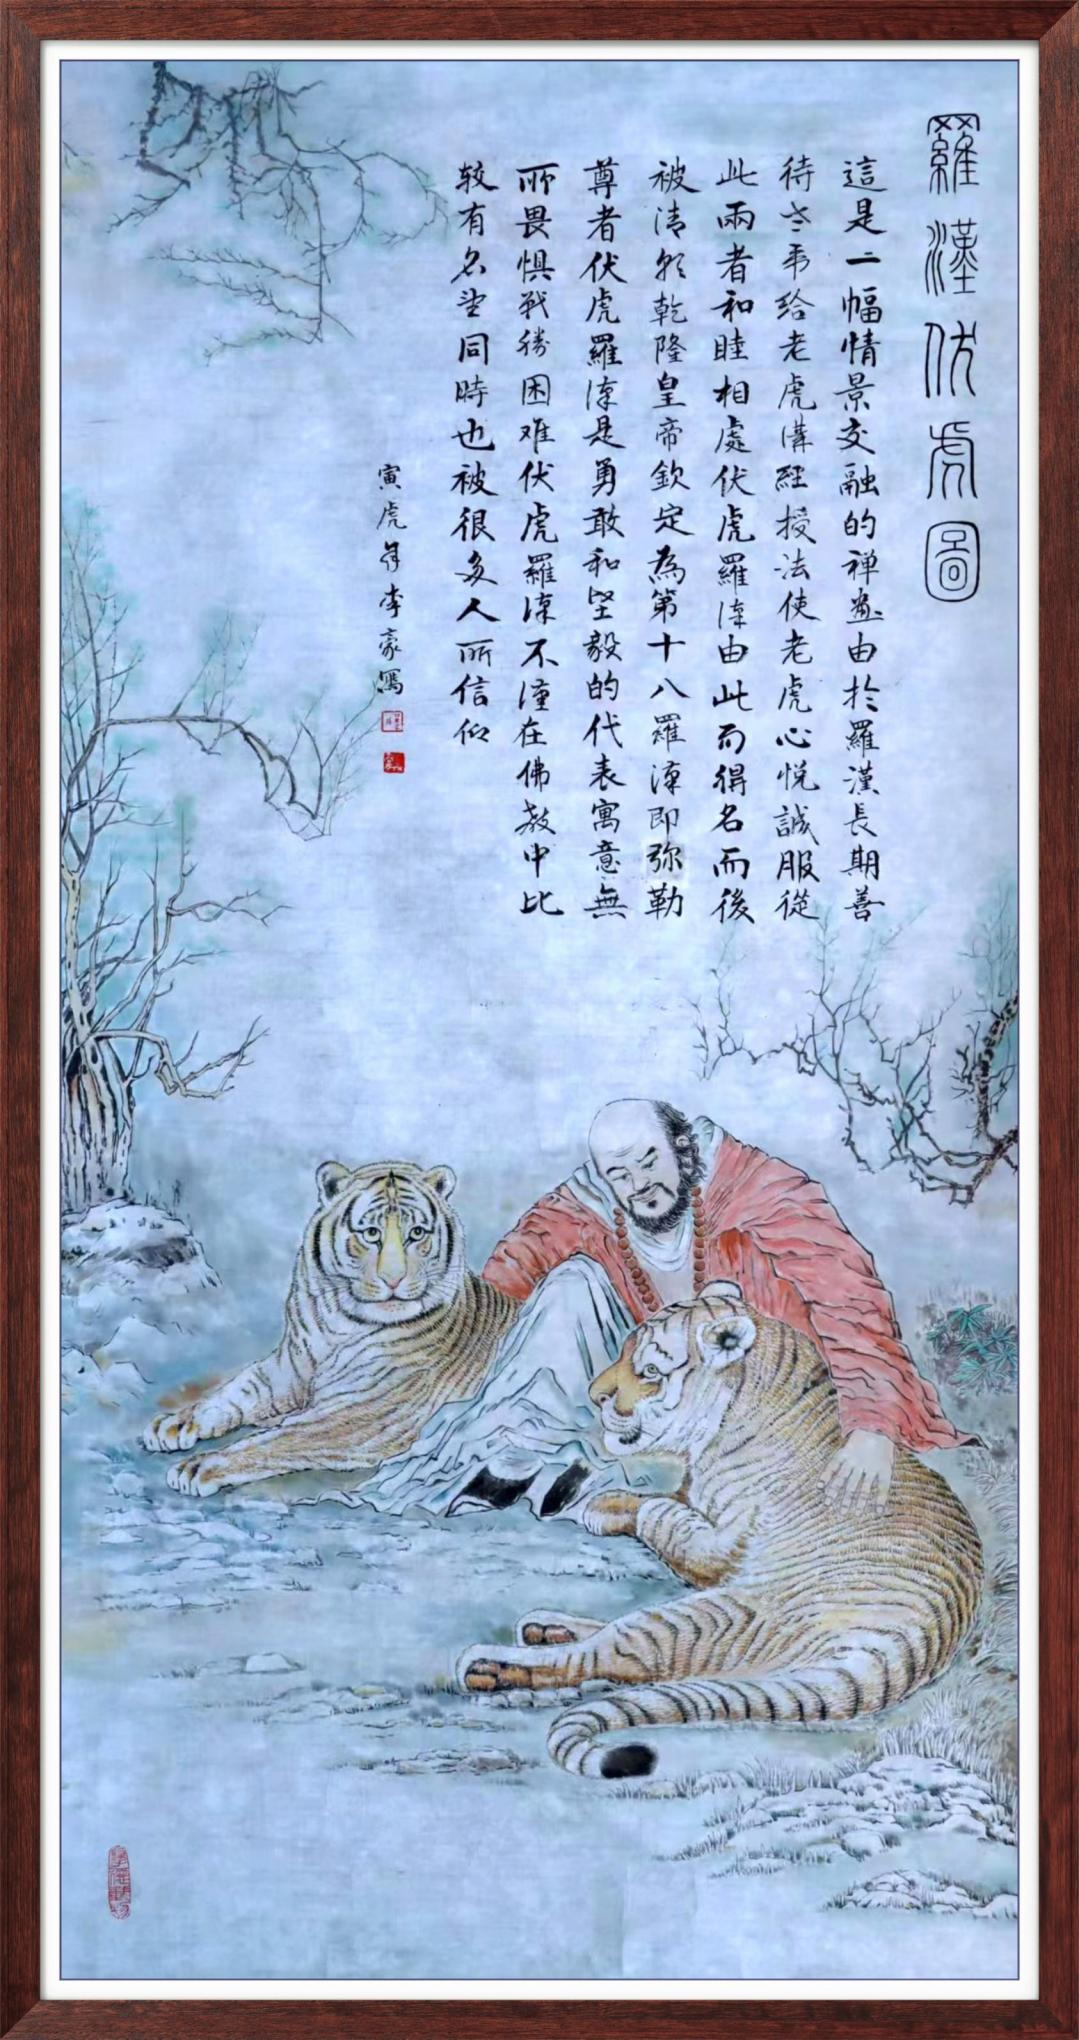 羅漢伏虎圖
這是一幅情景交融的禅畫由於羅漢長期善
待老弟给老虎講経授法使老虎心悦誠服從
此兩者和睦相處伏虎羅漢由此而得名而後
被清朝乾隆皇帝欽定為第十八羅漢即弥勒
尊者伏虎羅漢是勇敢和坚毅的代表寓意無
所畏惧战勝困难伏虎羅漢不僅在佛教中比
较有名望同時也被很多人所信仰
寅虎年李豪寫